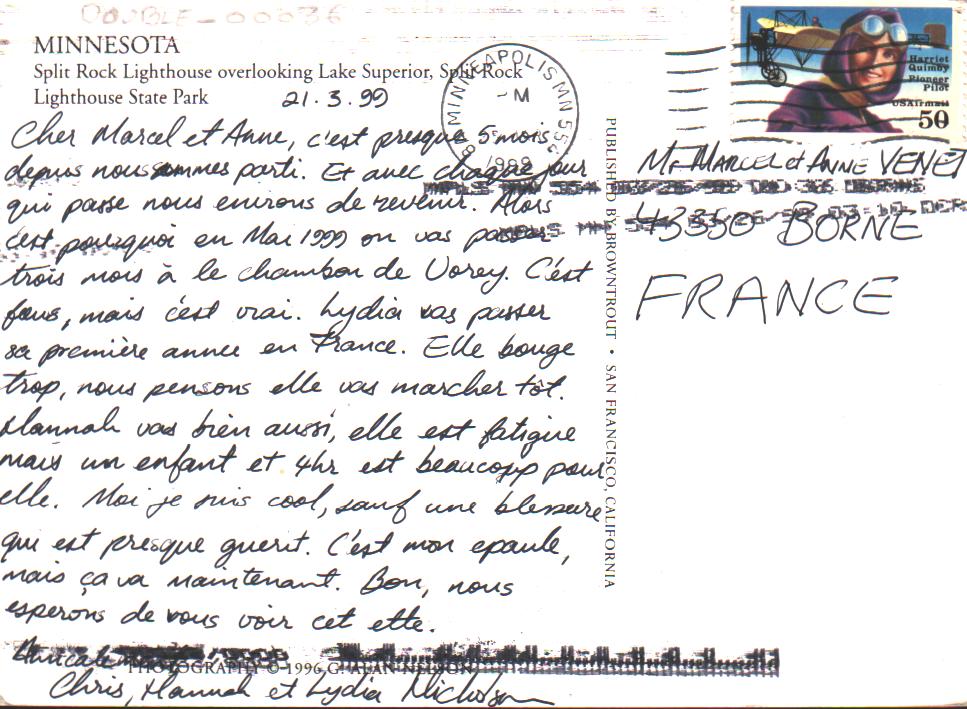 DOUBLE-00036
MINNESOTA
Split Rock Lighthouse overlooking Lake Superior, Split Rock
Lighthouse State Park
21.3.99
Cher Marcel et Anne, c'est presque 5 mois
depuis nous sommes parti. Et avec chaque jour
qui passe nous environs de revenir. Alors
c'est pourquoi en Mai 1999 on vas passer
trois mois à le chambon de Vorey. C'est
fous, mais c'est vrai. Lydia vas passer
sa première annee en France. Elle bouge
trop, nous pensons elle vas marcher tôt.
Hannah vas bien aussi, elle est fatigue
mais un enfant et 4hr est beaucoup pour
elle. Moi je suis cool, sauf une blessure
qui est presque guerit. C'est mon epaule,
mais ça va maintenant. Bon, nous
esperons de vous voir cet ette.
PHOTOGRAPHY © 1996 G. ALAN NELSON
Chris, Hannah et Lydia Nicholson
PUBLISHED BY BROWNTROUT • SAN FRANCISCO, CALIFORNIA
MINNEAPOLIS MN
Harriet
Quimby
Pioneer
Pilot
USAirmail
50
Mr MARCEL et ANNE VENET
43350 BORNE
FRANCE